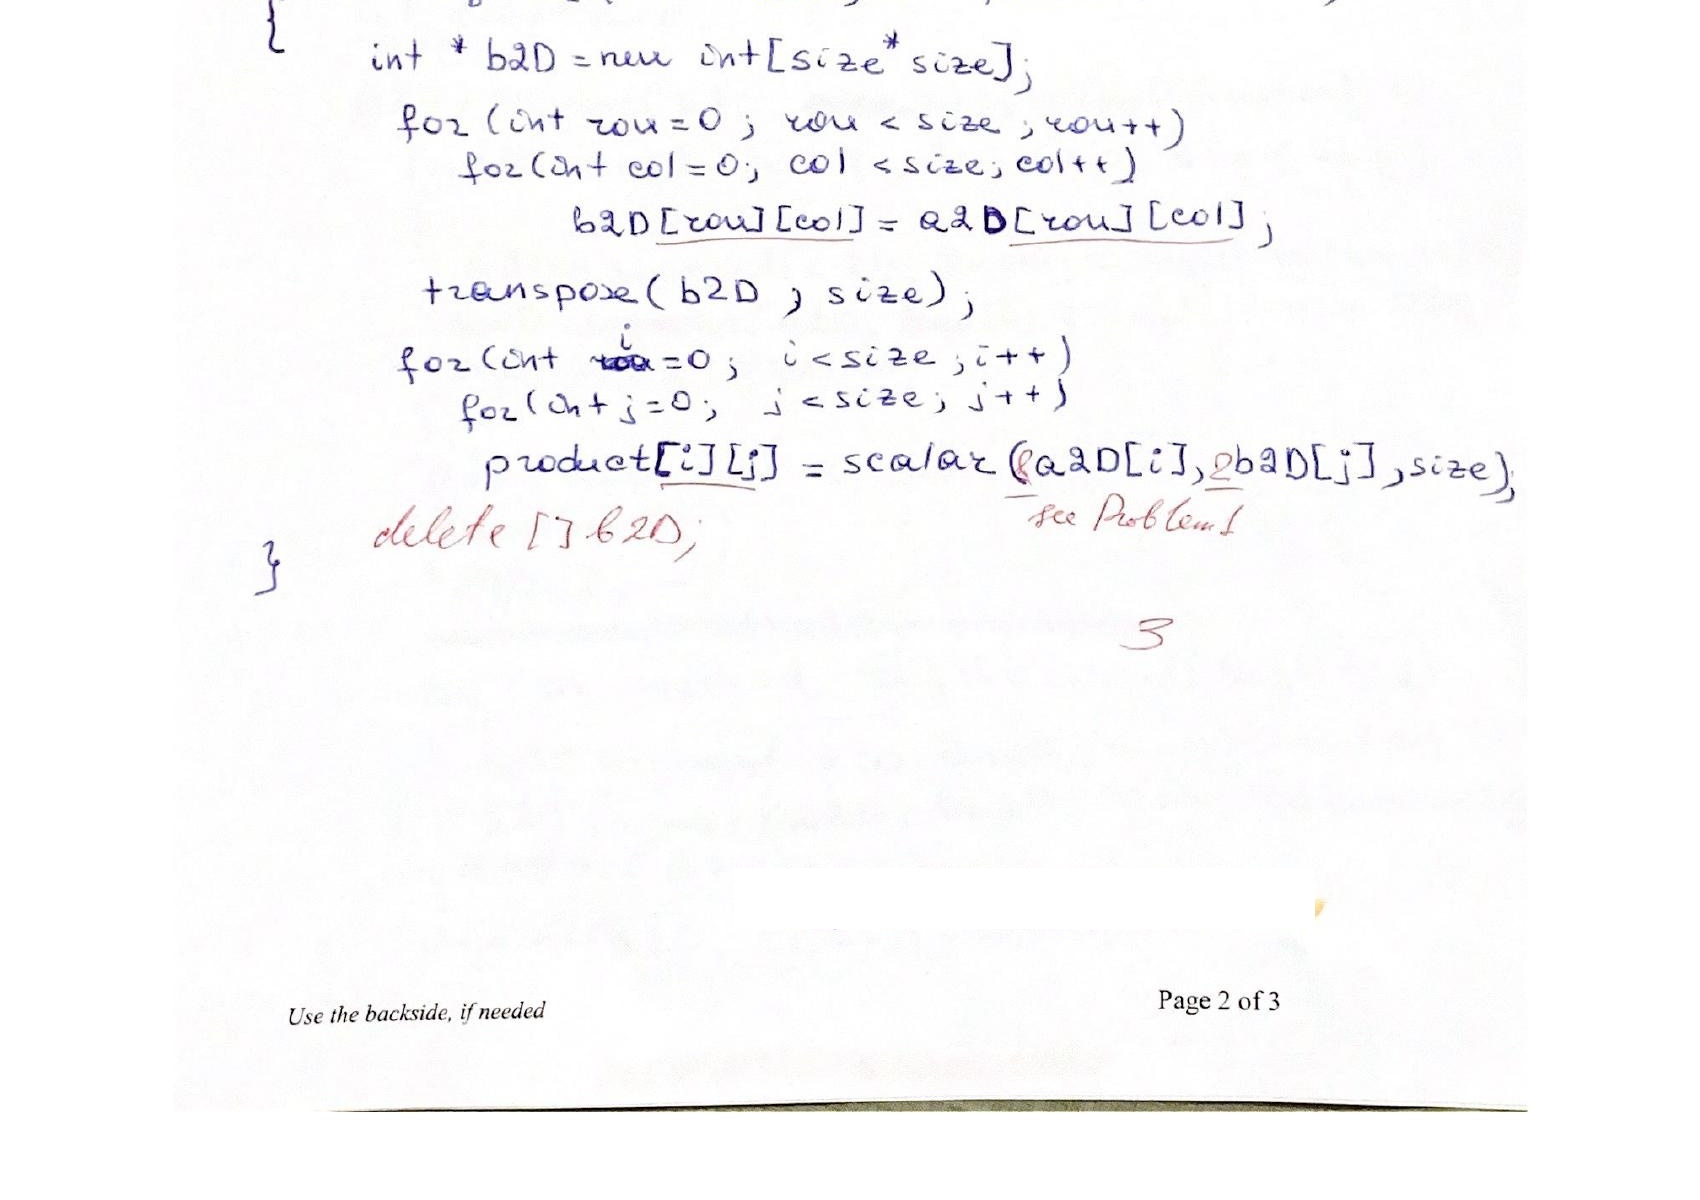 {
int * b2D = new int[size*size];
for (int row=0; row < size; row++)
for (int col=0; col < size; col++)
b2D[row][col] = a2D[row][col];
transpose(b2D, size);
i
for (int =0; i < size; i++)
for (int j=0; j < size; j++)
product[i][j] = scalar (&a2D[i], &b2D[j], size);
see Problem 1
delete [] b2D;
}
3
Use the backside, if needed
Page 2 of 3